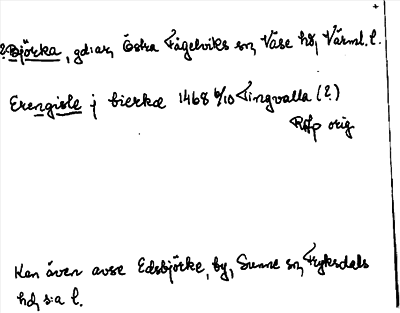 ? Björka, gdiar, Östra Fågelviks sn, Väse hd, Värml. l.
Erengisle j bierkæ 1468 6/10 Tingvalla (?)
RAp orig
Kan även avse Edsbjörke, by, Sunne sn, Fryksdals
hd, s:a l.